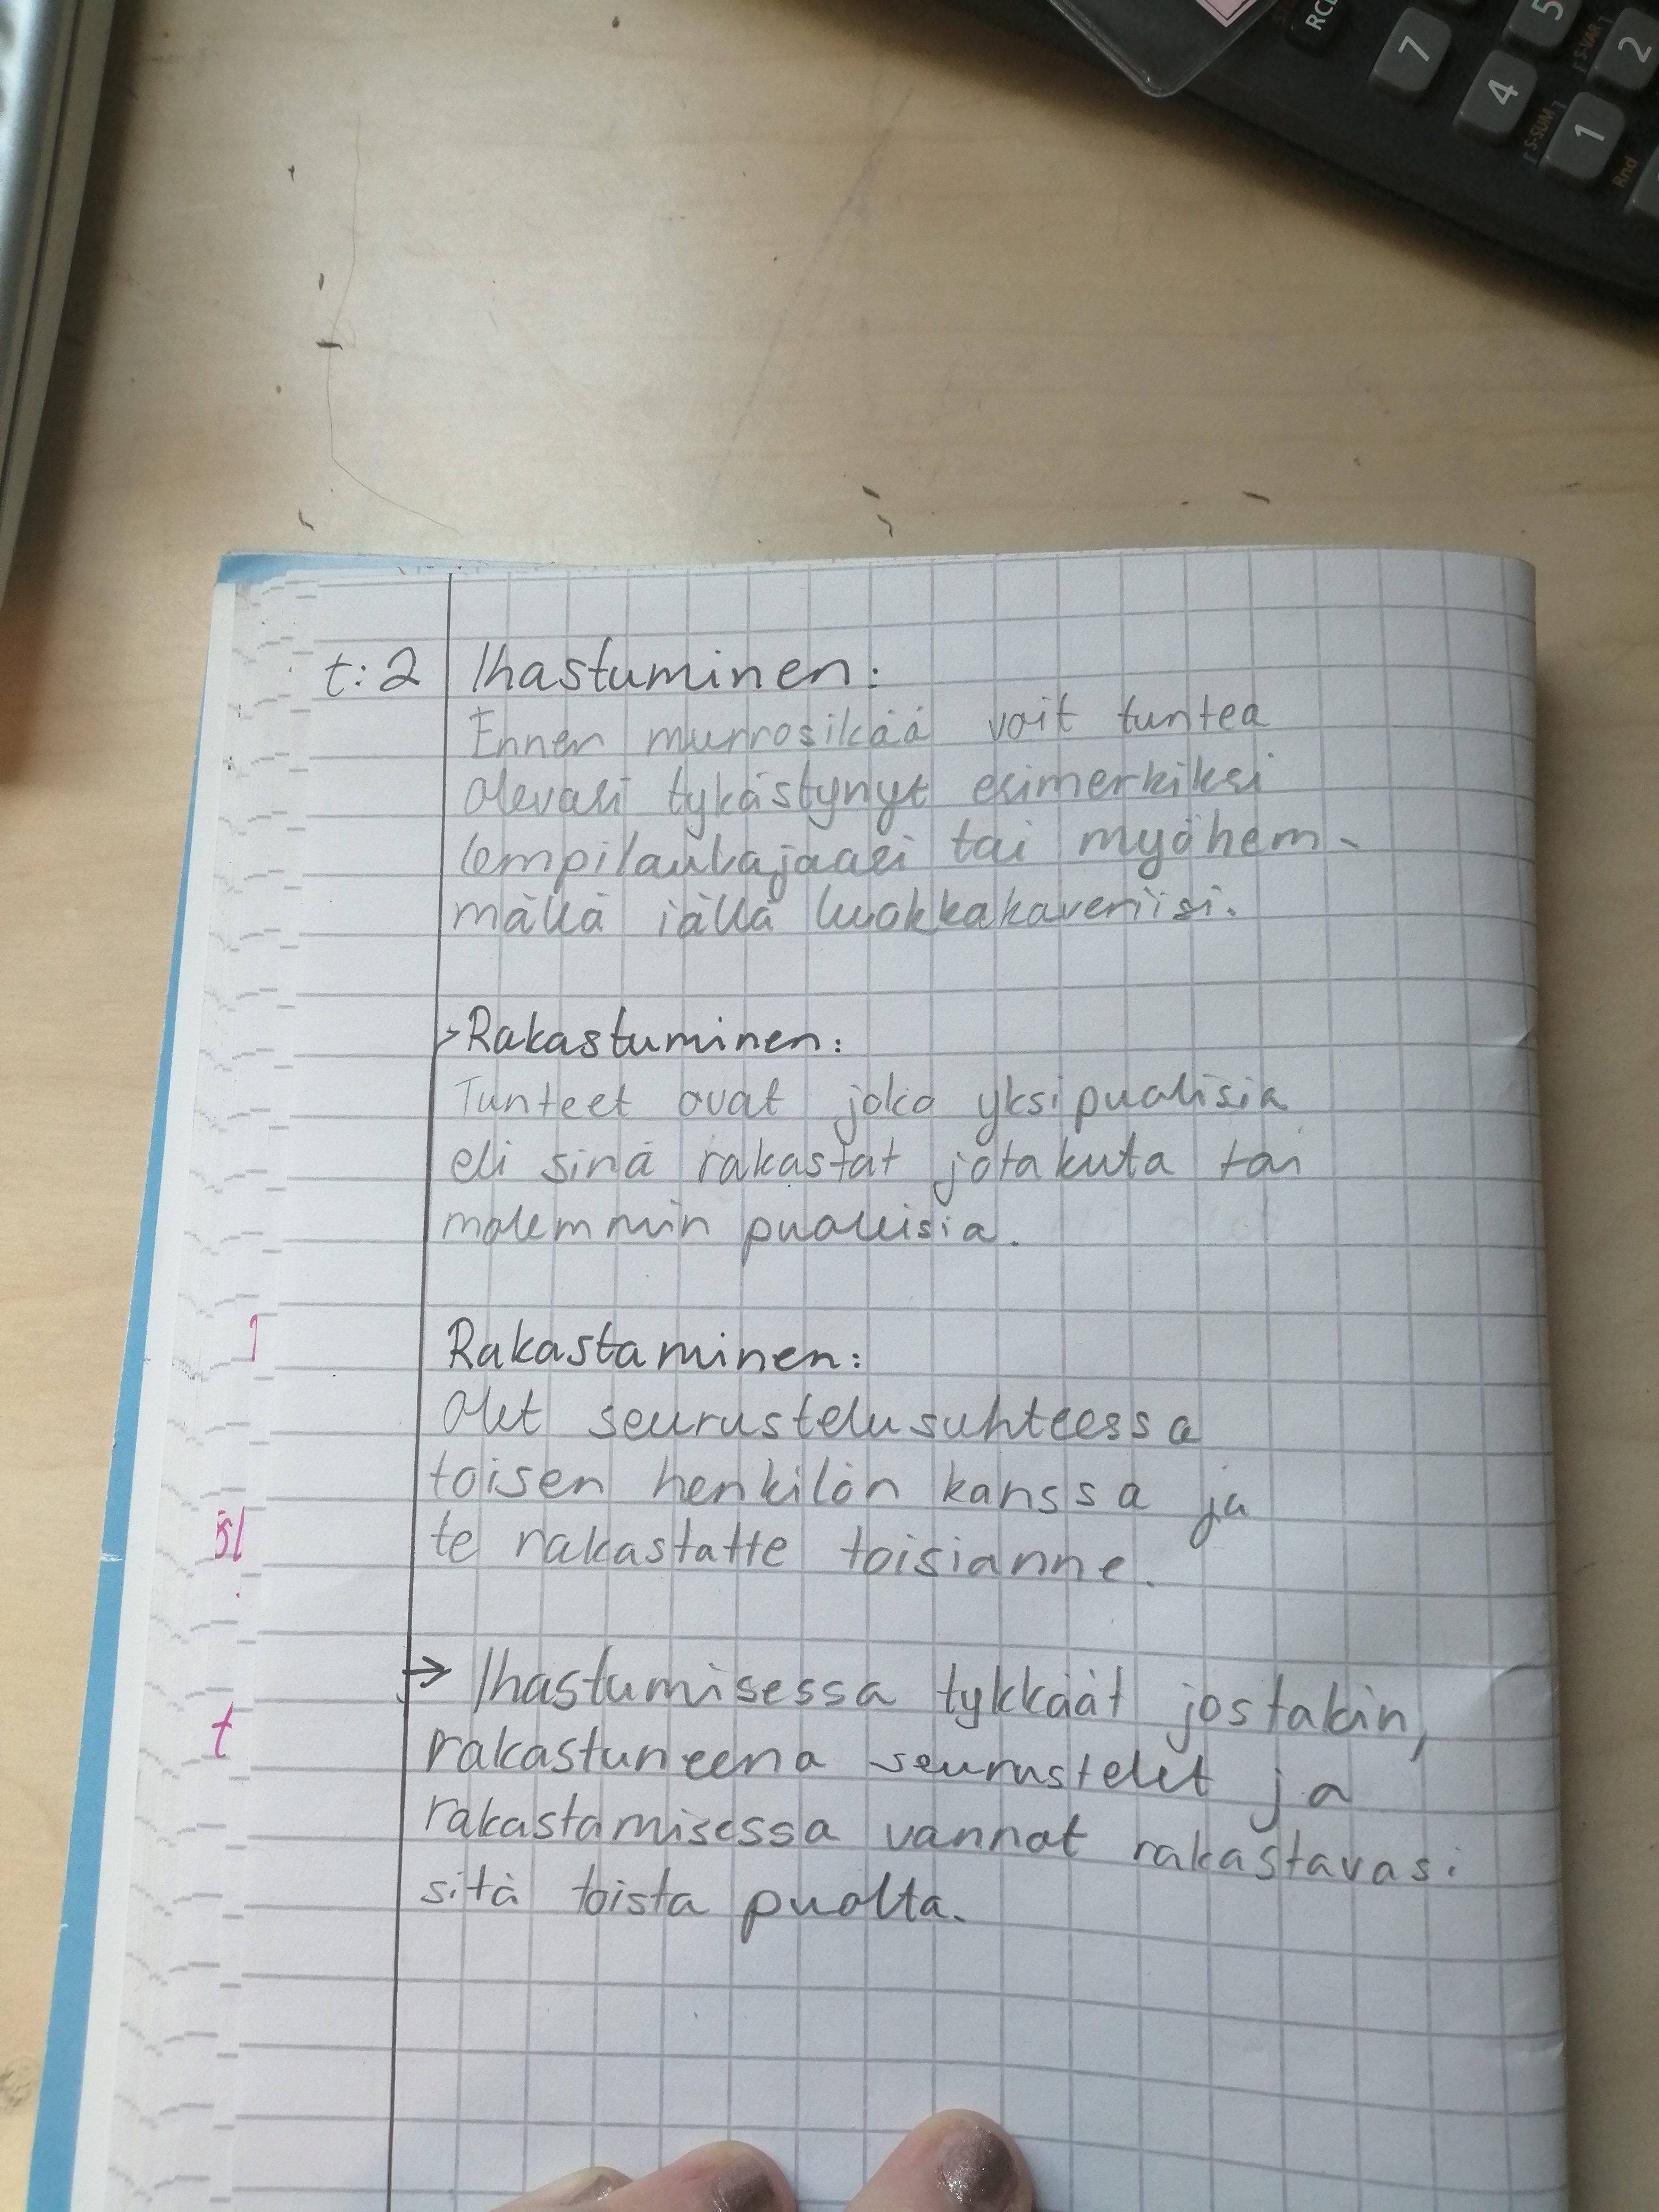 RCL
7
4
5
1
2
S-VAR
S-SUM
Rnd
t:2 Ihastuminen:
Ennen murrosikää voit tuntea
olevasi tykästynyt esimerkiksi
lempilaulajaasi tai myöhem-
mällä iällä luokkakaveriisi.
>Rakastuminen:
Tunteet ovat joko yksipuolisia
eli sinä rakastat jotakuta tai
molemmin puolisia.
Rakastaminen:
Olet seurustelusuhteessa
toisen henkilön kanssa ja
te rakastatte toisianne.
→ Ihastumisessa tykkäät jostakin,
rakastuneena seurustelet ja
rakastamisessa vannot rakastavasi
sitä toista puolta.
t